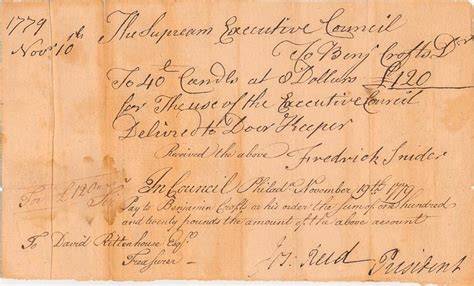 1779
Novr. 10th
The Supream Executive Council
To Benj Crofts Dr
To 40 lt Candls at 8 Dollars £120
for The use of the Executive Council
Delivred to Door Keeper
Received the above
Fredrick Snider
In Council Philada November 19th 1779
Pay to Benjamin Crofts or his order the sum of one hundred
and twenty pounds the amount of the above account
For £120
To David Rittenhouse Esqr.
Treasurer
Jos: Reed President